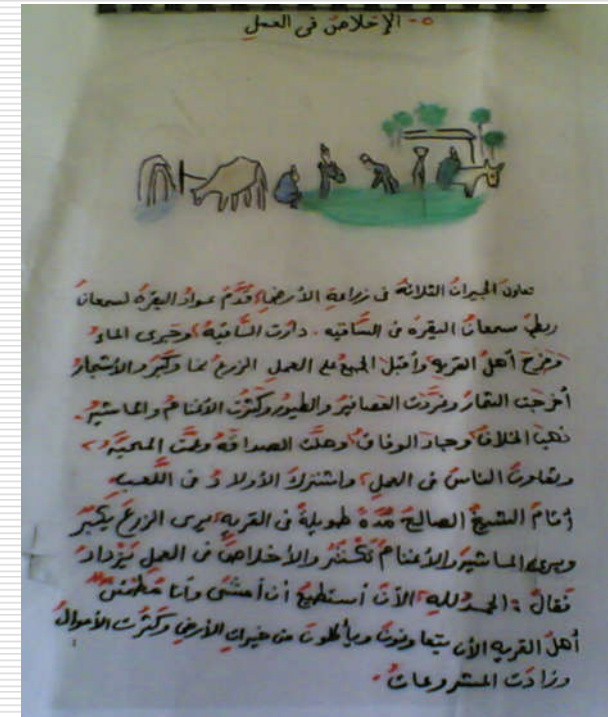 ٥- الإخلاصُ فى العملِ
تعاونَ الجيرانُ الثلاثة فى زراعةِ الأرضِ، قدَّمَ عوادُ البقرةُ لسمعانَ
ربطَ سمعانُ البقرة فى السَّاقيه . دارت السَّاقيةُ، وجرى الماءُ
وخرج أهلُ القريةِ وأقبلَ الجميع على العملِ الزرعُ نما وكَبُر والأشجارُ
أخرجت الثمارُ وغرَّدت العصافيرُ والطيورُ وكَثُرت الأغنامُ والماشيةُ.
ذهبَ الخلافُ وجاءَ الوفاقُ وحلَّت الصداقةُ وعمَّت المحبَّةُ،
وتعاونَ الناسُ فى العملِ، واشتركَ الأولادُ فى اللَّعبِ
أقامَ الشيخُ الصالحُ مُدةً طويلةً فى القريةِ، يرى الزرعَ يَكبُر
ويرى الماشيةَ والأغنامَ تَكثُر والأخلاصُ فى العملِ يَزدادُ
فقالَ : الحمدُ للهِ، الآنَ أستطيعُ أن أمشىَ وأنا مُطمئنٌ
أهلُ القريةِ الآن يتعاونونَ ويأكلونَ من خيراتِ الأرضِ وكَثُرت الأموالُ
وزادَت المشروعاتُ .